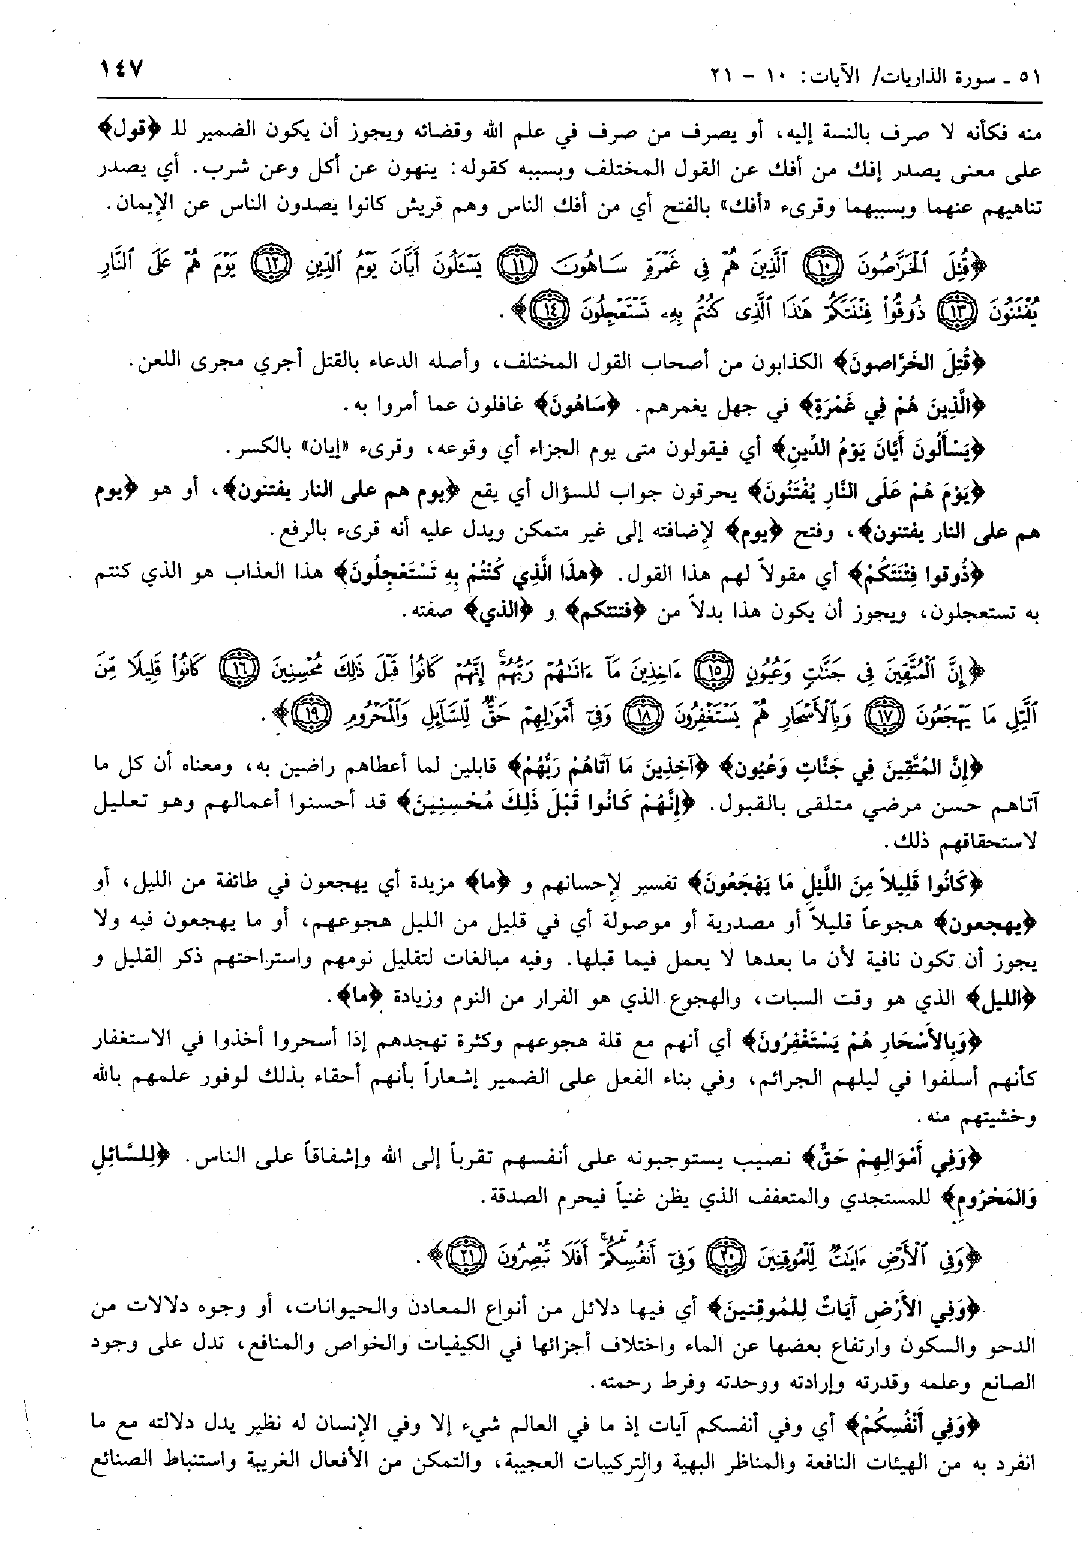 ٥١ ـ سورة الذاريات/ الآيات: ١٠ ـ ٢١
١٤٧
منه فكأنه لا صرف بالنسة إليه، أو يصرف من صرف في علم الله وقضائه ويجوز أن يكون الضمير للـ ﴿قول﴾
على معنى يصدر إفك من أفك عن القول المختلف وبسببه كقوله: ينهون عن أكل وعن شرب. أي يصدر
تناهيهم عنهما وبسببهما وقرىء «أفك» بالفتح أي من أفك الناس وهم قريش كانوا يصدون الناس عن الإيمان.
﴿قُتِلَ ٱلْخَرَّٰصُونَ ﴿١٠﴾ ٱلَّذِينَ هُمْ فِى غَمْرَةٍ سَاهُونَ ﴿١١﴾ يَسْـَٔلُونَ أَيَّانَ يَوْمُ ٱلدِّينِ ﴿١٢﴾ يَوْمَ هُمْ عَلَى ٱلنَّارِ
يُفْتَنُونَ ﴿١٣﴾ ذُوقُوا۟ فِتْنَتَكُمْ هَٰذَا ٱلَّذِى كُنتُم بِهِۦ تَسْتَعْجِلُونَ ﴿١٤﴾﴾.
﴿قُتِلَ الخَرَّاصونَ﴾ الكذابون من أصحاب القول المختلف، وأصله الدعاء بالقتل أجري مجرى اللعن.
﴿الَّذِينَ هُمْ فِي غَمْرَةٍ﴾ في جهل يغمرهم. ﴿سَاهُونَ﴾ غافلون عما أمروا به.
﴿يَسْأَلُونَ أَيَّانَ يَوْمُ الدِّينِ﴾ أي فيقولون متى يوم الجزاء أي وقوعه، وقرىء «إيان» بالكسر.
﴿يَوْمَ هُمْ عَلَى النَّارِ يُفْتَنُونَ﴾ يحرقون جواب للسؤال أي يقع ﴿يوم هم على النار يفتنون﴾، أو هو ﴿يوم
هم على النار يفتنون﴾، وفتح ﴿يوم﴾ لإضافته إلى غير متمكن ويدل عليه أنه قرىء بالرفع.
﴿ذُوقوا فِتْنَتَكُمْ﴾ أي مقولاً لهم هذا القول. ﴿هذَا الَّذِي كُنْتُمْ بِهِ تَسْتَعْجِلُونَ﴾ هذا العذاب هو الذي كنتم
به تستعجلون، ويجوز أن يكون هذا بدلاً من ﴿فتنتكم﴾ و ﴿الذي﴾ صفته.
﴿إِنَّ ٱلْمُتَّقِينَ فِى جَنَّٰتٍ وَعُيُونٍ ﴿١٥﴾ ءَاخِذِينَ مَآ ءَاتَىٰهُمْ رَبُّهُمْ إِنَّهُمْ كَانُوا۟ قَبْلَ ذَٰلِكَ مُحْسِنِينَ ﴿١٦﴾ كَانُوا۟ قَلِيلًا مِّنَ
ٱلَّيْلِ مَا يَهْجَعُونَ ﴿١٧﴾ وَبِٱلْأَسْحَارِ هُمْ يَسْتَغْفِرُونَ ﴿١٨﴾ وَفِىٓ أَمْوَٰلِهِمْ حَقٌّ لِّلسَّآئِلِ وَٱلْمَحْرُومِ ﴿١٩﴾﴾.
﴿إِنَّ المُتَّقِينَ فِي جَنَّاتٍ وَعُيُون﴾ ﴿آخِذِينَ مَا آتَاهُمْ رَبُّهُمْ﴾ قابلين لما أعطاهم راضين به، ومعناه أن كل ما
آتاهم حسن مرضي متلقى بالقبول. ﴿إِنَّهُمْ كَانُوا قَبْلَ ذَلِكَ مُحْسِنِينَ﴾ قد أحسنوا أعمالهم وهو تعليل
لاستحقاقهم ذلك.
﴿كَانُوا قَلِيلاً مِنَ اللَّيْلِ مَا يَهْجَعُونَ﴾ تفسير لإحسانهم و ﴿ما﴾ مزيدة أي يهجعون في طائفة من الليل، أو
﴿يهجعون﴾ هجوعاً قليلاً أو مصدرية أو موصولة أي في قليل من الليل هجوعهم، أو ما يهجعون فيه ولا
يجوز أن تكون نافية لأن ما بعدها لا يعمل فيما قبلها. وفيه مبالغات لتقليل نومهم واستراحتهم ذكر القليل و
﴿الليل﴾ الذي هو وقت السبات، والهجوع الذي هو الفرار من النوم وزيادة ﴿ما﴾.
﴿وَبِالأَسْحَارِ هُمْ يَسْتَغْفِرُونَ﴾ أي أنهم مع قلة هجوعهم وكثرة تهجدهم إذا أسحروا أخذوا في الاستغفار
كأنهم أسلفوا في ليلهم الجرائم، وفي بناء الفعل على الضمير إشعاراً بأنهم أحقاء بذلك لوفور علمهم بالله
وخشيتهم منه.
﴿وَفِي أَمْوَالِهِمْ حَقٌّ﴾ نصيب يستوجبونه على أنفسهم تقرباً إلى الله وإشفاقاً على الناس. ﴿لِلسَّائِلِ
وَالمَحْرُومِ﴾ للمستجدي والمتعفف الذي يظن غنياً فيحرم الصدقة.
﴿وَفِى ٱلْأَرْضِ ءَايَٰتٌ لِّلْمُوقِنِينَ ﴿٢٠﴾ وَفِىٓ أَنفُسِكُمْ أَفَلَا تُبْصِرُونَ ﴿٢١﴾﴾.
﴿وَفِي الأَرْضِ آيَاتٌ لِلمُوقِنينَ﴾ أي فيها دلائل من أنواع المعادن والحيوانات، أو وجوه دلالات من
الدحو والسكون وارتفاع بعضها عن الماء واختلاف أجزائها في الكيفيات والخواص والمنافع، تدل على وجود
الصانع وعلمه وقدرته وإرادته ووحدته وفرط رحمته.
﴿وَفِي أَنْفُسِكُمْ﴾ أي وفي أنفسكم آيات إذ ما في العالم شيء إلا وفي الإنسان له نظير يدل دلالته مع ما
انفرد به من الهيئات النافعة والمناظر البهية والتركيبات العجيبة، والتمكن من الأفعال الغريبة واستنباط الصنائع